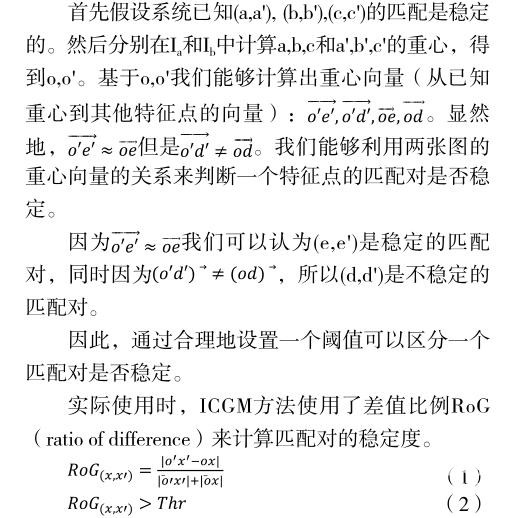 首先假设系统已知(a,a'), (b,b'),(c,c')的匹配是稳定
的。然后分别在Iₐ和I_b中计算a,b,c和a',b',c'的重心，得
到o,o'。基于o,o'我们能够计算出重心向量（从已知
重心到其他特征点的向量）：$\overrightarrow{o'e'},\overrightarrow{o'd'},\overrightarrow{oe},\overrightarrow{od}$。显然
地，$\overrightarrow{o'e'} \approx \overrightarrow{oe}$但是$\overrightarrow{o'd'} \neq \overrightarrow{od}$。我们能够利用两张图的
重心向量的关系来判断一个特征点的匹配对是否稳
定。
因为$\overrightarrow{o'e'} \approx \overrightarrow{oe}$我们可以认为(e,e')是稳定的匹配
对，同时因为$(o'd')^{\rightarrow} \neq (od)^{\rightarrow}$，所以(d,d')是不稳定的
匹配对。
因此，通过合理地设置一个阈值可以区分一个
匹配对是否稳定。
实际使用时，ICGM方法使用了差值比例RoG
（ratio of difference）来计算匹配对的稳定度。
$RoG_{(x,x')} = \frac{|o'x'-ox|}{|\bar{o}'x'|+|\bar{o}x|}$ （1）
$RoG_{(x,x')} > Thr$ （2）